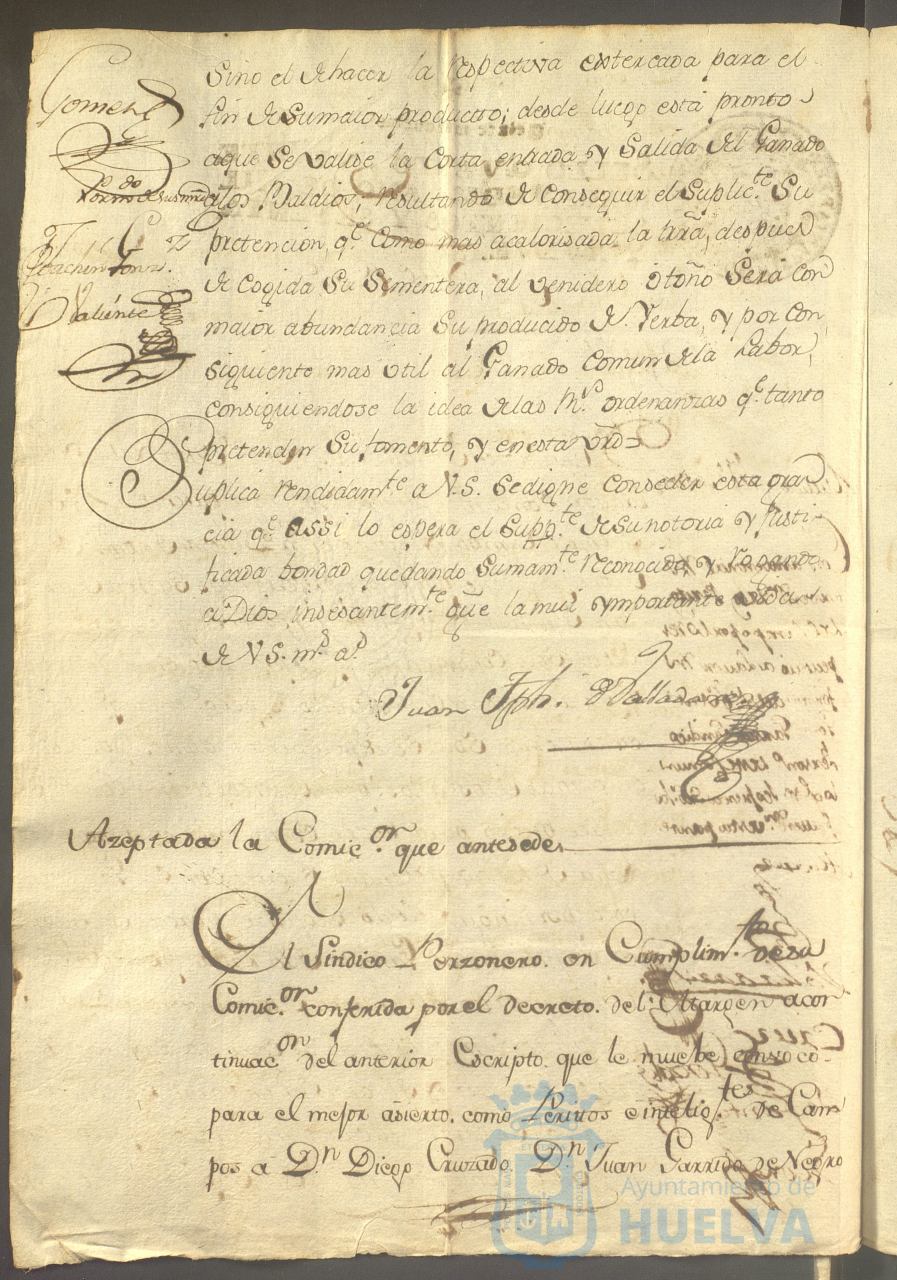 Gomez
Por m.do de su md.
Joachin Gonz.
Valiente
Sino el de hacer la respectiva estercada para el
fin de su maior producto; desde luego está pronto
aque se valide la corta entrada y salida del Ganado
alos Baldios; resultando de conseguir el Suplic.te Su
pretencion, q.e como mas acalorisada la trrã, despues
de cogida Su Simentera, al venidero otoño Será con
maior abundancia Su producido de Yerba, y por con
siguiente mas util al Ganado Comun dela Labor,
consiguiendose la idea delas R.s ordenanzas q.e tanto
pretenden su fomento, y en esta vrd=
Suplica rendidam.te a V.S. se digne conseder esta gra
cia q.e assi lo espera el Supp.te de su notoria y Justi-
ficada bondad quedando Sumam.te reconocido y rogando
a Dios insesantem.te gũe la mui ymportante vida
de V.S. m.s a.s
Juan Jph. de Valladares
Azeptada la Comic.on que antesede,
El Sindico Perzonero en Cumplim.to de su
Comic.on conferida por el decreto del Margen acon
tinuac.on del anterior Escripto que le muebe combocó
para el mejor asierto, como Peritos e intelig.tes de Cam
pos á D.n Diego Cruzado, D.n Juan Garrido de Negro
Ayuntamiento de
HUELVA